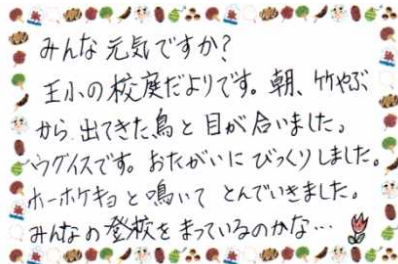 みんな元気ですか？
王小の校庭だよりです。朝、竹やぶ
から出てきた鳥と目が合いました。
ウグイスです。おたがいにびっくりしました。
ホーホケキョと鳴いてとんでいきました。
みんなの登校をまっているのかな…